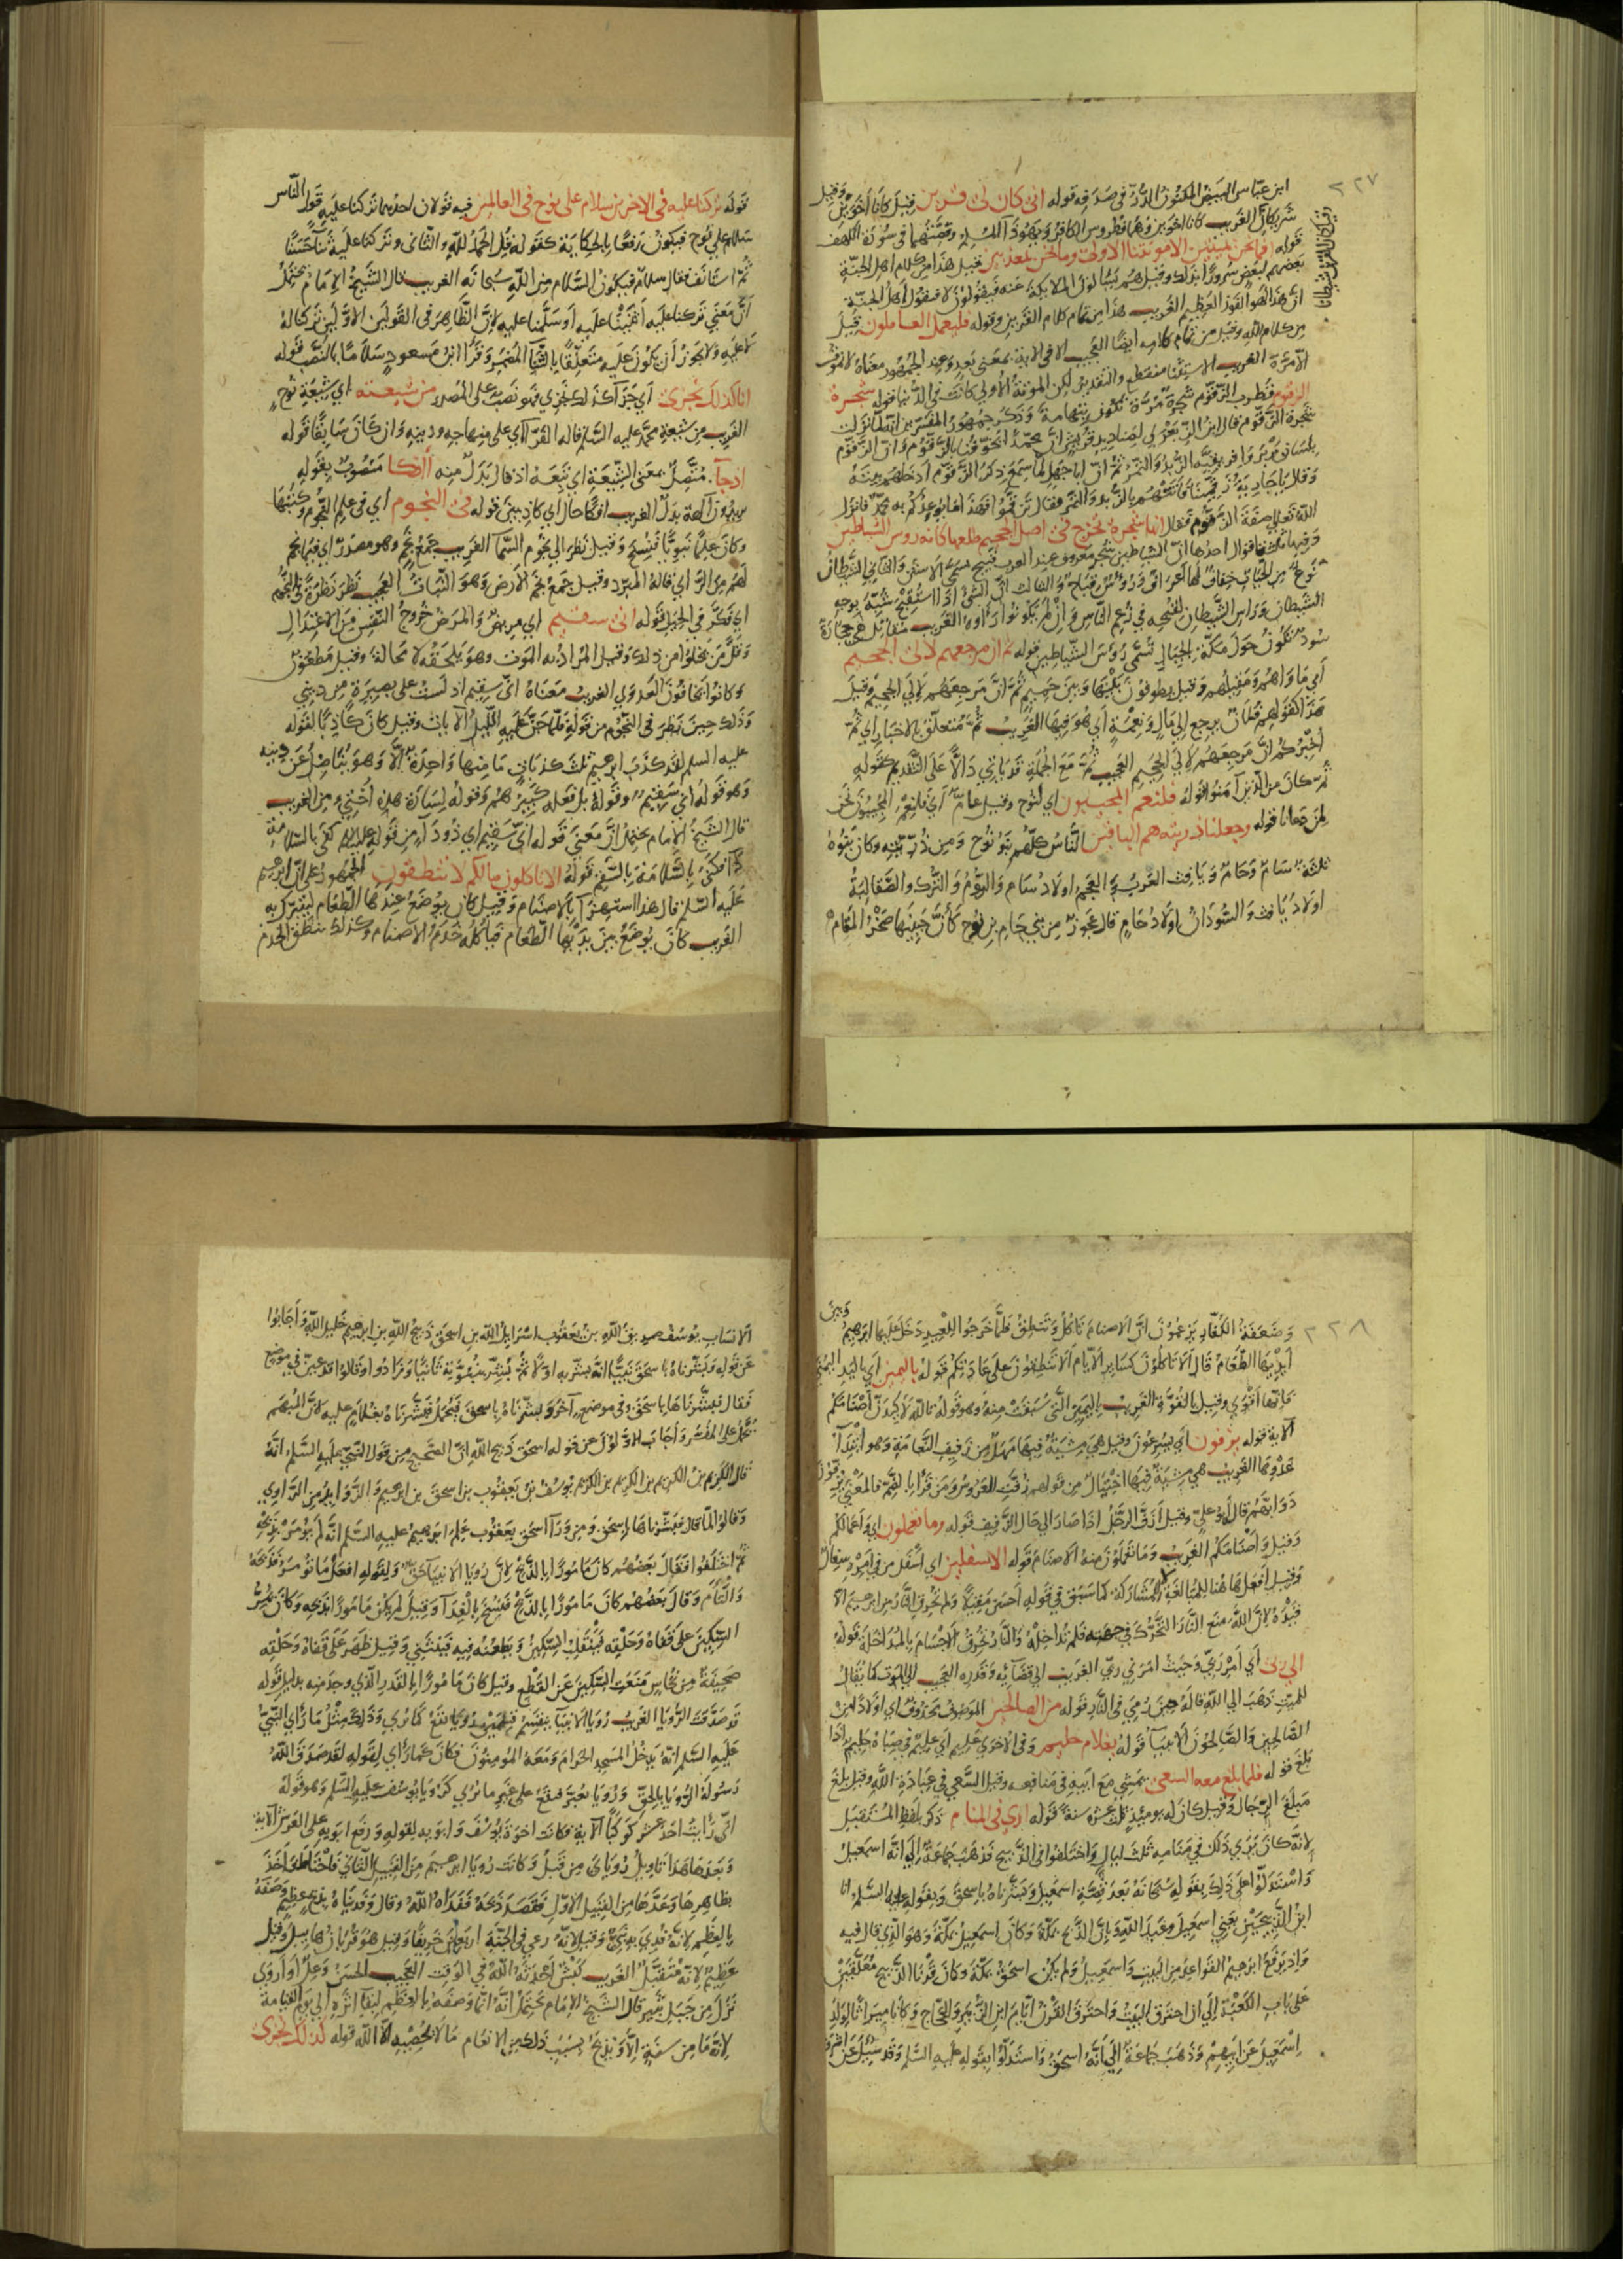 ٢٢٧
ابن عباس البيض المكنون الدر في صدفه قوله اني كان لي قرين قيل كانا اخوين وقيل
شريكان الغريب كانا اخوين وهما فطروس الكافر ويهوذا المسلم وقصتهما في سورة الكهف
قوله افما نحن بميتين الا موتتنا الاولى وما نحن بمعذبين قيل هذا من كلام اهل الجنة
بعضهم لبعض سرورا بذلك وقيل هم يسألون الملائكة عنه فيقولون لا فيقول اهل الجنة
ان هذا لهو الفوز العظيم الغريب هذا من تمام كلام القرين وقوله فليعمل العاملون قيل
من كلام الله وقيل من تمام كلامه ايضا العجيب الا في الاية بمعنى بعد وعند الجمهور معناه لا نموت
الا مرة الغريب الاستثنا منقطع والتقدير لكن الموتة الاولى كانت في الدنيا قوله شجرة
الزقوم قطرب الزقوم شجرة مرة تكون بتهامة وذكر جمهور المفسرين انه لما نزلت
شجرة الزقوم قال ابن الزبعرى لصناديد قريش ان محمدا يخوفنا بالزقوم وان الزقوم
بلسان بربر وافريقية الزبد والتمر ثم ان ابا جهل لما سمع ذكر الزقوم ادخلهم بيته
وقال يا جارية زقمينا فاتتهم بالزبد والتمر فقال تزقموا فهذا ما يوعدكم به محمد فانزل
الله تعالى صفة الزقوم فقال انها شجرة تخرج في اصل الجحيم طلعها كانه رؤس الشياطين
وفيها ثلثة اقوال احدها ان الشياطين شجر معروف عند العرب قبيح يسمى الاستن والثاني الشيطان
نوع من الحيات خفاف لها اعراف ورؤس قباح والثالث ان الشئ اذا استقبح شبه بوجه
الشيطان وراس الشيطان لقبحه في زعم الناس وان لم يكونوا راوه الغريب مقاتل هي حجارة
سود تكون حول مكة والجبال تسمى رؤس الشياطين قوله ثم ان مرجعهم لالى الجحيم
اي ماواهم ومقيلهم وقيل يطوفون بينها وبين حميم ثم ان مرجعهم لالى الجحيم وقيل
هذا كقولهم فلان يرجع الى مال ونعمة اي هو فيها الغريب ثم متعلق بالاخبار اي ثم
اخبركم ان مرجعهم لالى الجحيم العجيب ثم مع الجملة قد ياتي دالا على التقديم كقوله
ثم كان من الذين امنوا قوله فلنعم المجيبون اي لنوح وقيل عام اي فلنعم المجيبون نحن
لمن دعانا قوله وجعلنا ذريته هم الباقين الناس كلهم بنو نوح ومن ذريته وكان بنوه
ثلثة سام وحام ويافث العرب والعجم اولاد سام والروم والترك والصقالبة
اولاد يافث والسودان اولاد حام قال عجوز من بني حام بن نوح كان جبينها حجر المقام
قوله تركنا عليه في الاخرين سلام على نوح في العالمين فيه قولان احدهما تركنا عليه قول الناس
سلام على نوح فيكون رفعا بالحكاية كقوله قل الحمد لله والثاني وتركنا عليه ثناء حسنا
ثم استانف فقال سلام فيكون السلام من الله سبحانه الغريب قال الشيخ الامام يحتمل
ان معنى تركنا عليه ابقينا عليه او سلمنا عليه لان الظاهر في القولين الاولين تركنا له
لا عليه ولا يجوز ان يكون عليه متعلقا بالثناء المضمر وقرأ ابن مسعود سلاما بالنصب قوله
انا كذلك نجزي اي جزآ كذلك نجزي فهو نصب على المصدر من شيعته اي شيعة نوح
الغريب من شيعة محمد عليه السلم قاله الفرآ اي على منهاجه ودينه وان كان سابقا قوله
اذ جآ متصل بمعنى الشيعة اي تبعه اذ قال بدل منه أئفكا منصوب بقوله
تريدون آلهة بدل الغريب افكا حال اي كاذبين قوله في النجوم اي في علم النجوم وكتبها
وكان علما نبويا فنسخ وقيل نظر الى نجوم السما الغريب جمع نجم وهو مصدر اي فيما نجم
لهم من الراي قاله المبرد وقيل جمع نجم الارض وهو النبات العجيب نظر نظرة في النجوم
اي فكر في الحيل قوله اني سقيم اي مريض والمرض خروج النفس من الاعتدال
وقل من يخلوا من ذلك وقيل المراد به الموت وهو يلحقه لا محالة وقيل مطعون
وكانوا يخافون العدوى الغريب معناه اني سقيم اذ لست على بصيرة من ديني
وذلك حين نظر في النجوم من قوله فلما جن عليه الليل الآيات وقيل كان كاذبا لقوله
عليه السلم لقد كذب ابرهيم ثلث كذبات ما منها واحدة الا وهو يناضل عن دينه
وهو قوله اني سقيم وقوله بل فعله كبيرهم وقوله لسارة هذه اختي من الغريب
قال الشيخ الامام يحتمل ان معنى قوله اني سقيم اي ذو دآء من قوله عليه السلم كفى بالسلامة
دآ فكنى بالسلامة بالسقم قوله الا تاكلون مالكم لا تنطقون الجمهور على ان ابرهيم
عليه السلم قال هذا استهزآ بالاصنام وقيل كان يوضع عندها الطعام ليتبرك به
الغريب كان يوضع بين يديها الطعام فياكله خدم الاصنام وكذلك تنطق الخدم
٢٢٨
وضعفة الكفار يزعمون ان الاصنام تاكل وتنطق فلما خرجوا للعيد دخل عليها ابرهيم وبين
ايديها الطعام قال الا تاكلون كساير الايام الا تنطقون على عادتكم قوله باليمين اي باليد اليمنى
فانها اقوى وقيل بالقوة الغريب باليمين التي سبقت منه وهو قوله تالله لاكيدن اصنامكم
الآية قوله يزفون اي يسرعون وقيل هي مشية فيها مهل من زفيف النعامة وهو ابتدآ
عدوها الغريب هي مشية فيها اختيال من قولهم زفت العروس ومن قرأ بالضم فالمعنى يزفون
دوابهم قال ابو علي وقيل ازف الرجل اذا صار الى حال الزفيف قوله وما تعملون اي واعمالكم
وقيل واصنامكم الغريب وما تعملون منه الاصنام قوله الاسفلين اي اسفل من في امر وسفال
وقيل افعل ها هنا للمبالغة لا للمشاركة كما سبق في قوله احسن مقيلا ولم تحرق النار من ابرهيم الا
قيده لان الله منع النار التحرك في جهته فلم تداخله والنار تحرق الاجسام بالمداخلة قوله
الى ربي اي امر ربي وحيث امرني ربي الغريب الى قضائه وقدره العجيب الى الموت كما يقال
للميت ذهب الى الله قاله حين رمي في النار قوله من الصالحين الموصوف محذوف اي اولادا من
الصالحين والصالحون الانبيآ قوله بغلام حليم وفي الاخرى عليم اي عليم في صباه حليم اذا
بلغ قوله فلما بلغ معه السعي يمشي مع ابيه في منافعه وقيل السعي في عبادة الله وقيل بلغ
مبلغ الرجال وقيل كان له يومئذ ثلث عشرة سنة قوله ارى في المنام ذكر بلفظ المستقبل
لانه كان يرى ذلك في منامه ثلث ليال واختلفوا في الذبيح فذهب جماعة الى انه اسمعيل
واستدلوا على ذلك بقوله سبحانه بعد قصة اسمعيل وبشرناه باسحق وبقوله عليه السلم انا
ابن الذبيحين يعني اسمعيل وعبد الله وبان الذبح بمكة وكان اسمعيل بمكة وهو الذي قال فيه
واذ يرفع ابرهيم القواعد من البيت واسمعيل ولم يكن اسحق بمكة وكان قرنا الذبيح معلقين
على باب الكعبة الى ان احترق البيت واحترق القرن ايام ابن الزبير والحجاج وكانا ميراثا لولد
اسمعيل عن ابيهم وذهب جماعة الى انه اسحق واستدلوا بقوله عليه السلم وقد سئل عن اشرف
الانساب يوسف صديق الله بن يعقوب اسرائيل الله بن اسحق ذبيح الله بن ابرهيم خليل الله واجابوا
عن قوله وبشرناه باسحق نبيا انه بشر به اولا ثم بشر بنبوته ثانيا وزادوا وقالوا قد عين في موضع
فقال فبشرناها باسحق وفي موضع آخر وبشرناه باسحق فيحمل فبشرناه بغلام عليه لان المبهم
يحمل على المفسر واجاب الاولون عن قوله اسحق ذبيح الله ان الصحيح من قول النبي عليه السلم انه
قال الكريم بن الكريم بن الكريم بن الكريم يوسف بن يعقوب بن اسحق بن ابرهيم والزوايد من الراوي
وقالوا لما قال فبشرناها باسحق ومن ورآ اسحق يعقوب علم ابرهيم عليه السلم انه لم يؤمر بذبحه
ثم اختلفوا فقال بعضهم كان مامورا بالذبح لان رؤيا الانبيآ حق ولقوله افعل ما تؤمر فذبحه
والتام وقال بعضهم كان مامورا بالذبح فنسخ بالفدآ وقيل لم يكن مامورا بذبحه وكان يجر
السكين على قفاه وحلقه فينقلب السكين ويطعنه فيه فينثني وقيل ظهر على قفاه وحلقه
صحيفة من نحاس منعت السكين عن القطع وقيل كان مامورا بالقدر الذي وجد منه بدليل قوله
قد صدقت الرؤيا الغريب رؤيا الانبيآ ينقسم قسمين رؤيا تقع كما رؤي وذلك مثل ما رأى النبي
عليه السلم انه يدخل المسجد الحرام ومعه المومنون فكان كما راى لقوله لقد صدق الله
رسوله الرؤيا بالحق ورؤيا تعبر فتقع على غير ما رؤي كرؤيا يوسف عليه السلم وهو قوله
اني رايت احد عشر كوكبا الآية فكانت اخوة يوسف وابويه لقوله ورفع ابويه على العرش الآية
وبعدها هذا تاويل رؤياي من قبل وكانت رؤيا ابرهيم من القبيل الثاني فاحتاط واخذ
بظاهرها وعدها من القبيل الاول فقصد ذبحه ففداه الله وقال وفديناه بذبح عظيم وصفه
بالعظم لانه فدي به نبي وقيل لانه رعى في الجنة اربعين خريفا وقيل هو قربان هابيل وقيل
عظيم لانه متقبل الغريب كبش احدثه الله في الوقت العجيب الحسن وعل او اروى
نزل من جبل ثبير قال الشيخ الامام يحتمل انه انما وصفه بالعظم لبقآ اثره الى يوم القيامة
لانه ما من سنة الا ويذبح بسبب ذلك من الانعام ما لا يحصيه الا الله قوله كذلك نجزي